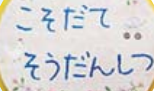 こそだて
そうだんしつ